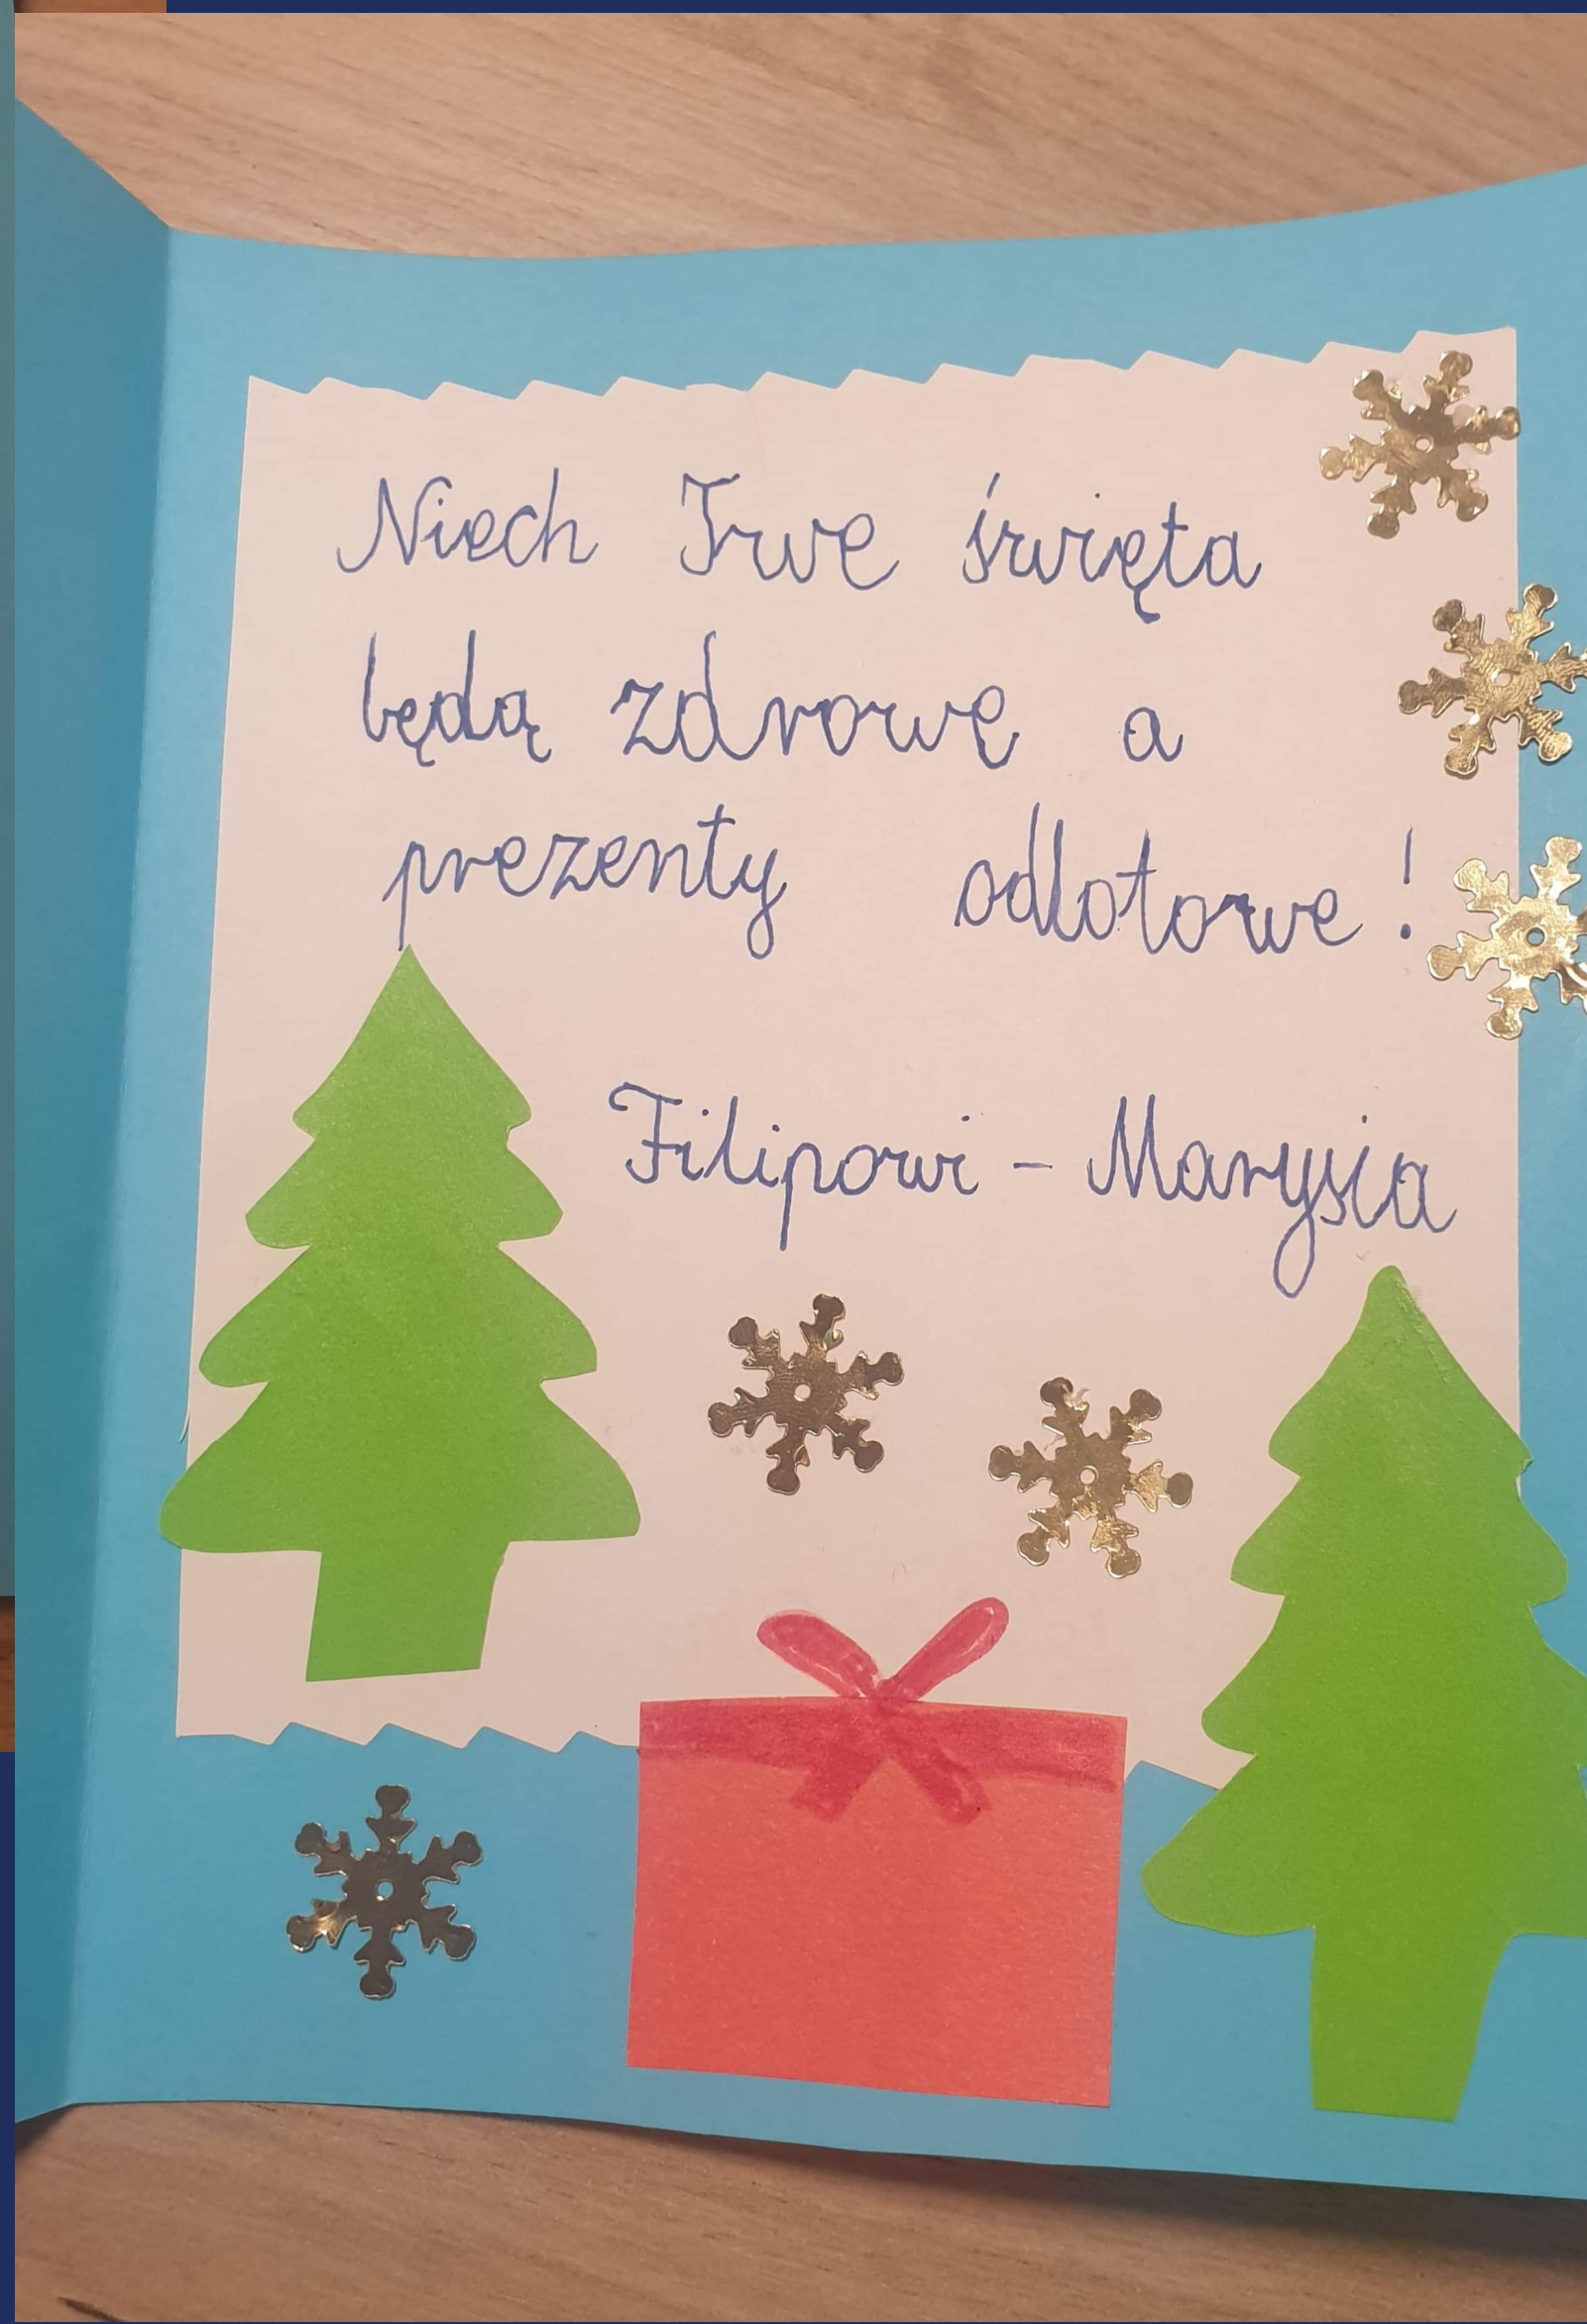 Niech Twe święta
będą zdrowe a
prezenty odlotowe!
Filipowi - Marysia